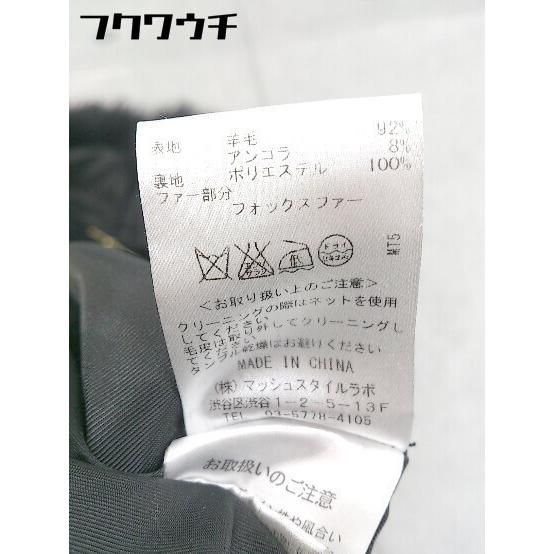 フクワウチ
表地 羊毛 92%
アンゴラ 8%
裏地 ポリエステル 100%
ファー部分
フォックスファー
エンソ
サラシ
低
ドライ
セキユ系
MT5
<お取り扱い上のご注意>
クリーニングの際はネットを使用
してください
毛皮は取り外してクリーニングし
てください
タンブル乾燥はお避けください
MADE IN CHINA
(株)マッシュスタイルラボ
渋谷区渋谷1-2-5-13F
TEL 03-5778-4105
お取扱いのご注意
性や風合い